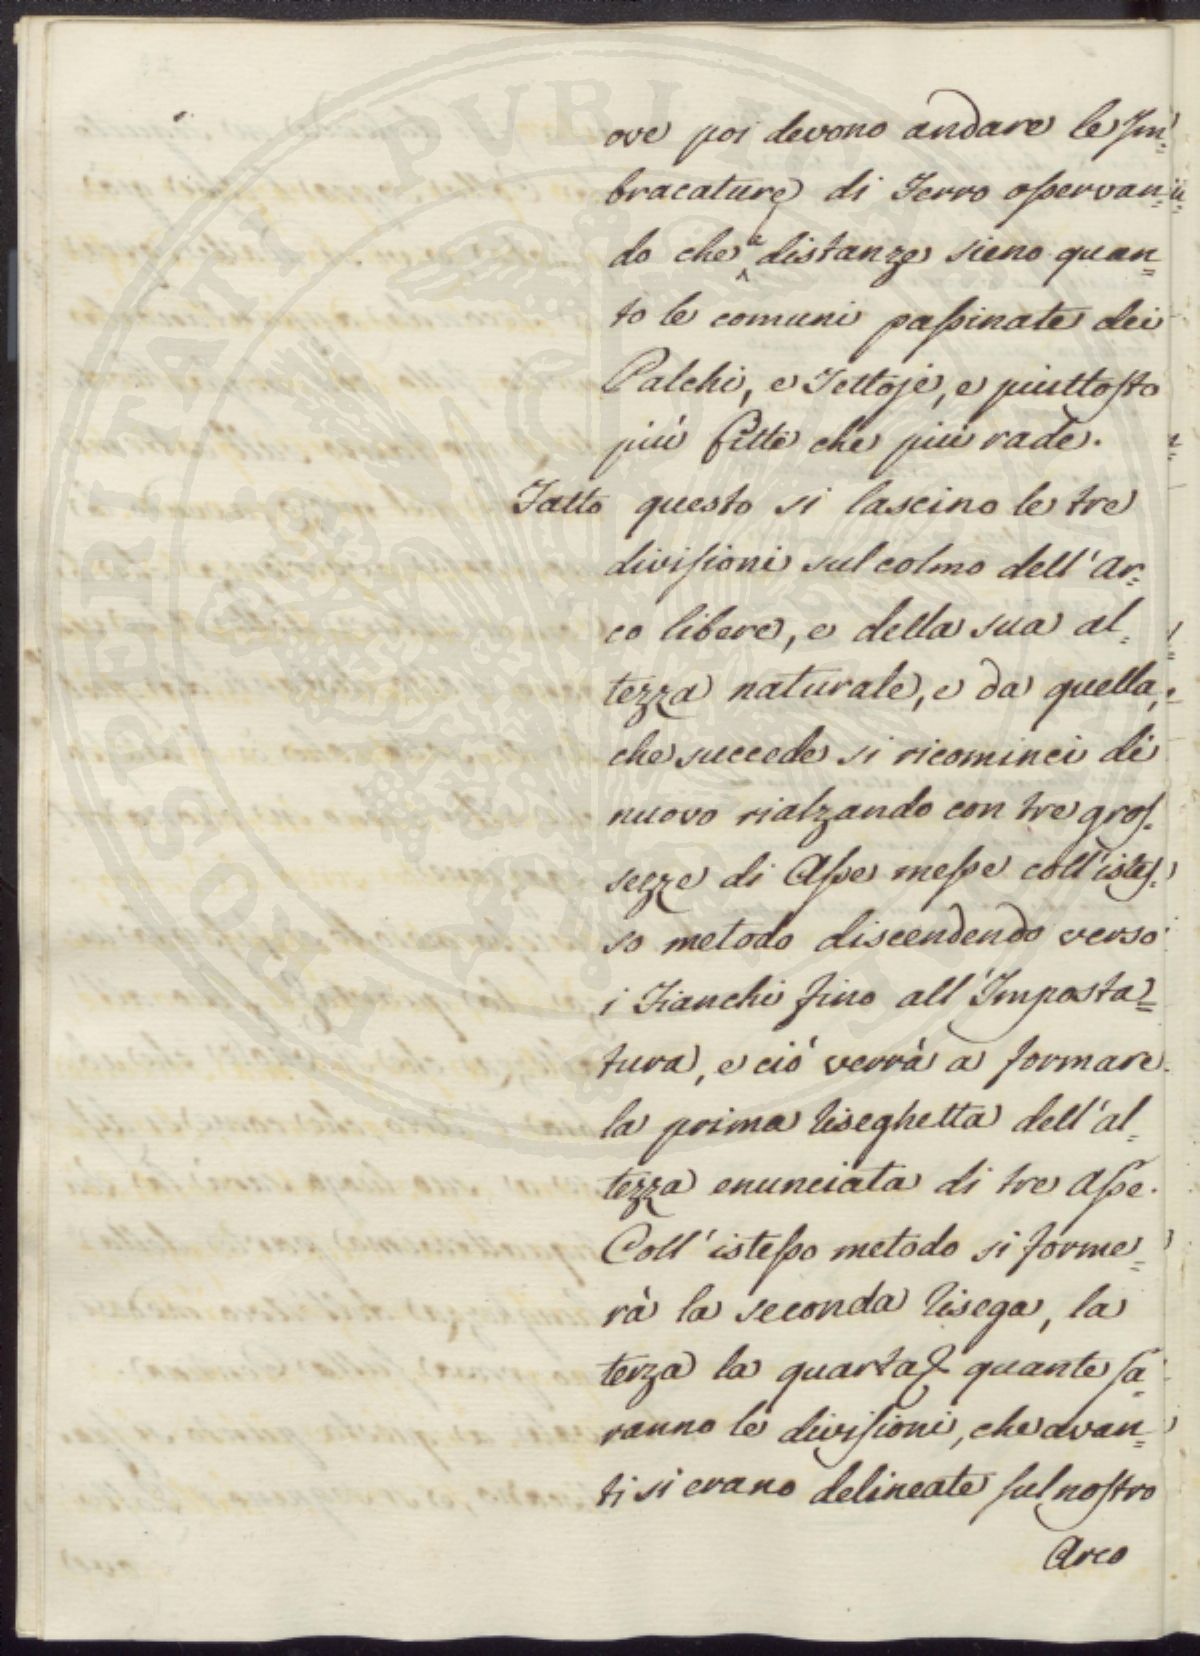 ove poi devono andare le Im=
bracature di Ferro osservan=
do che le distanze sieno quan=
to le comuni passinate dei
Palchi, e Tettoje, e piuttosto
più fitte che più rade.
Fatto questo si lascino le tre
divisioni sul colmo dell'Ar=
co libere, e della sua al=
tezza naturale, e da quella,
che succede si ricominci di
nuovo rialzando con tre gros=
sezze di Asse messe coll'istes=
so metodo discendendo verso
i Fianchi fino all'Imposta=
tura, e ciò verrà a formare
la prima liseghetta dell'al=
tezza enunciata di tre Asse.
Coll'istesso metodo si forme=
rà la seconda lisega, la
terza la quarta & quante sa=
ranno le divisioni, che avan=
ti si erano delineate sul nostro
Arco
PROSPERITATI PUBLICAE AU